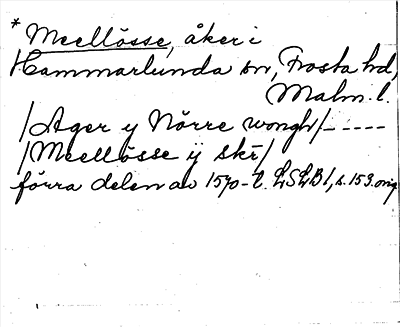 * Meellösse, åker i
Hammarlunda sn, Frosta hd,
Malm. l.
/Ager y Nörre wongh/-----
/Meellösse ÿ skr/
förra delen av 1570-t. LSLB 1, s. 153. orig